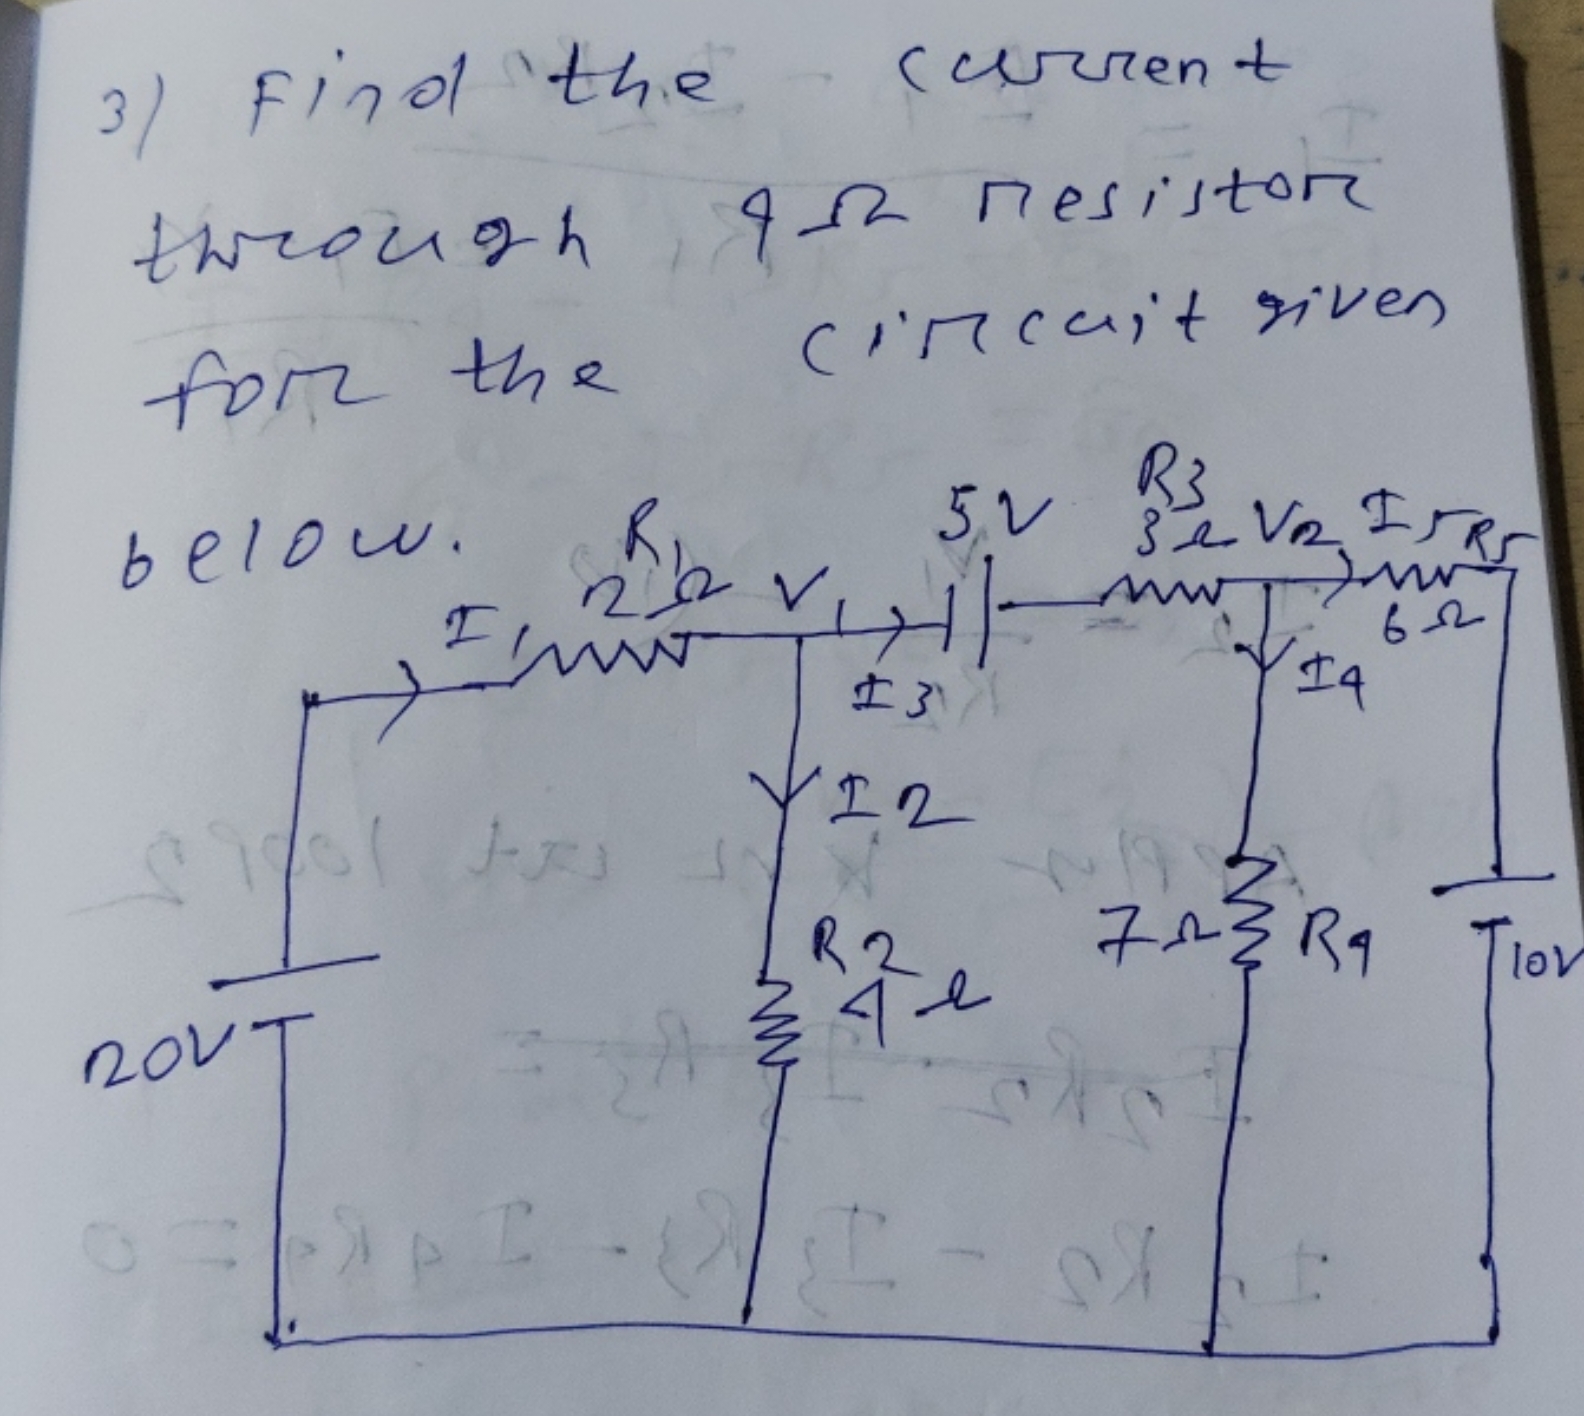 3) Find the current
through 4Ω resistor
for the circuit given
below.
5V
R3
3Ω V2 I5 R5
R1
2Ω V1
I1
6Ω
I3
I4
I2
R2
4Ω
7Ω R4
10V
20V